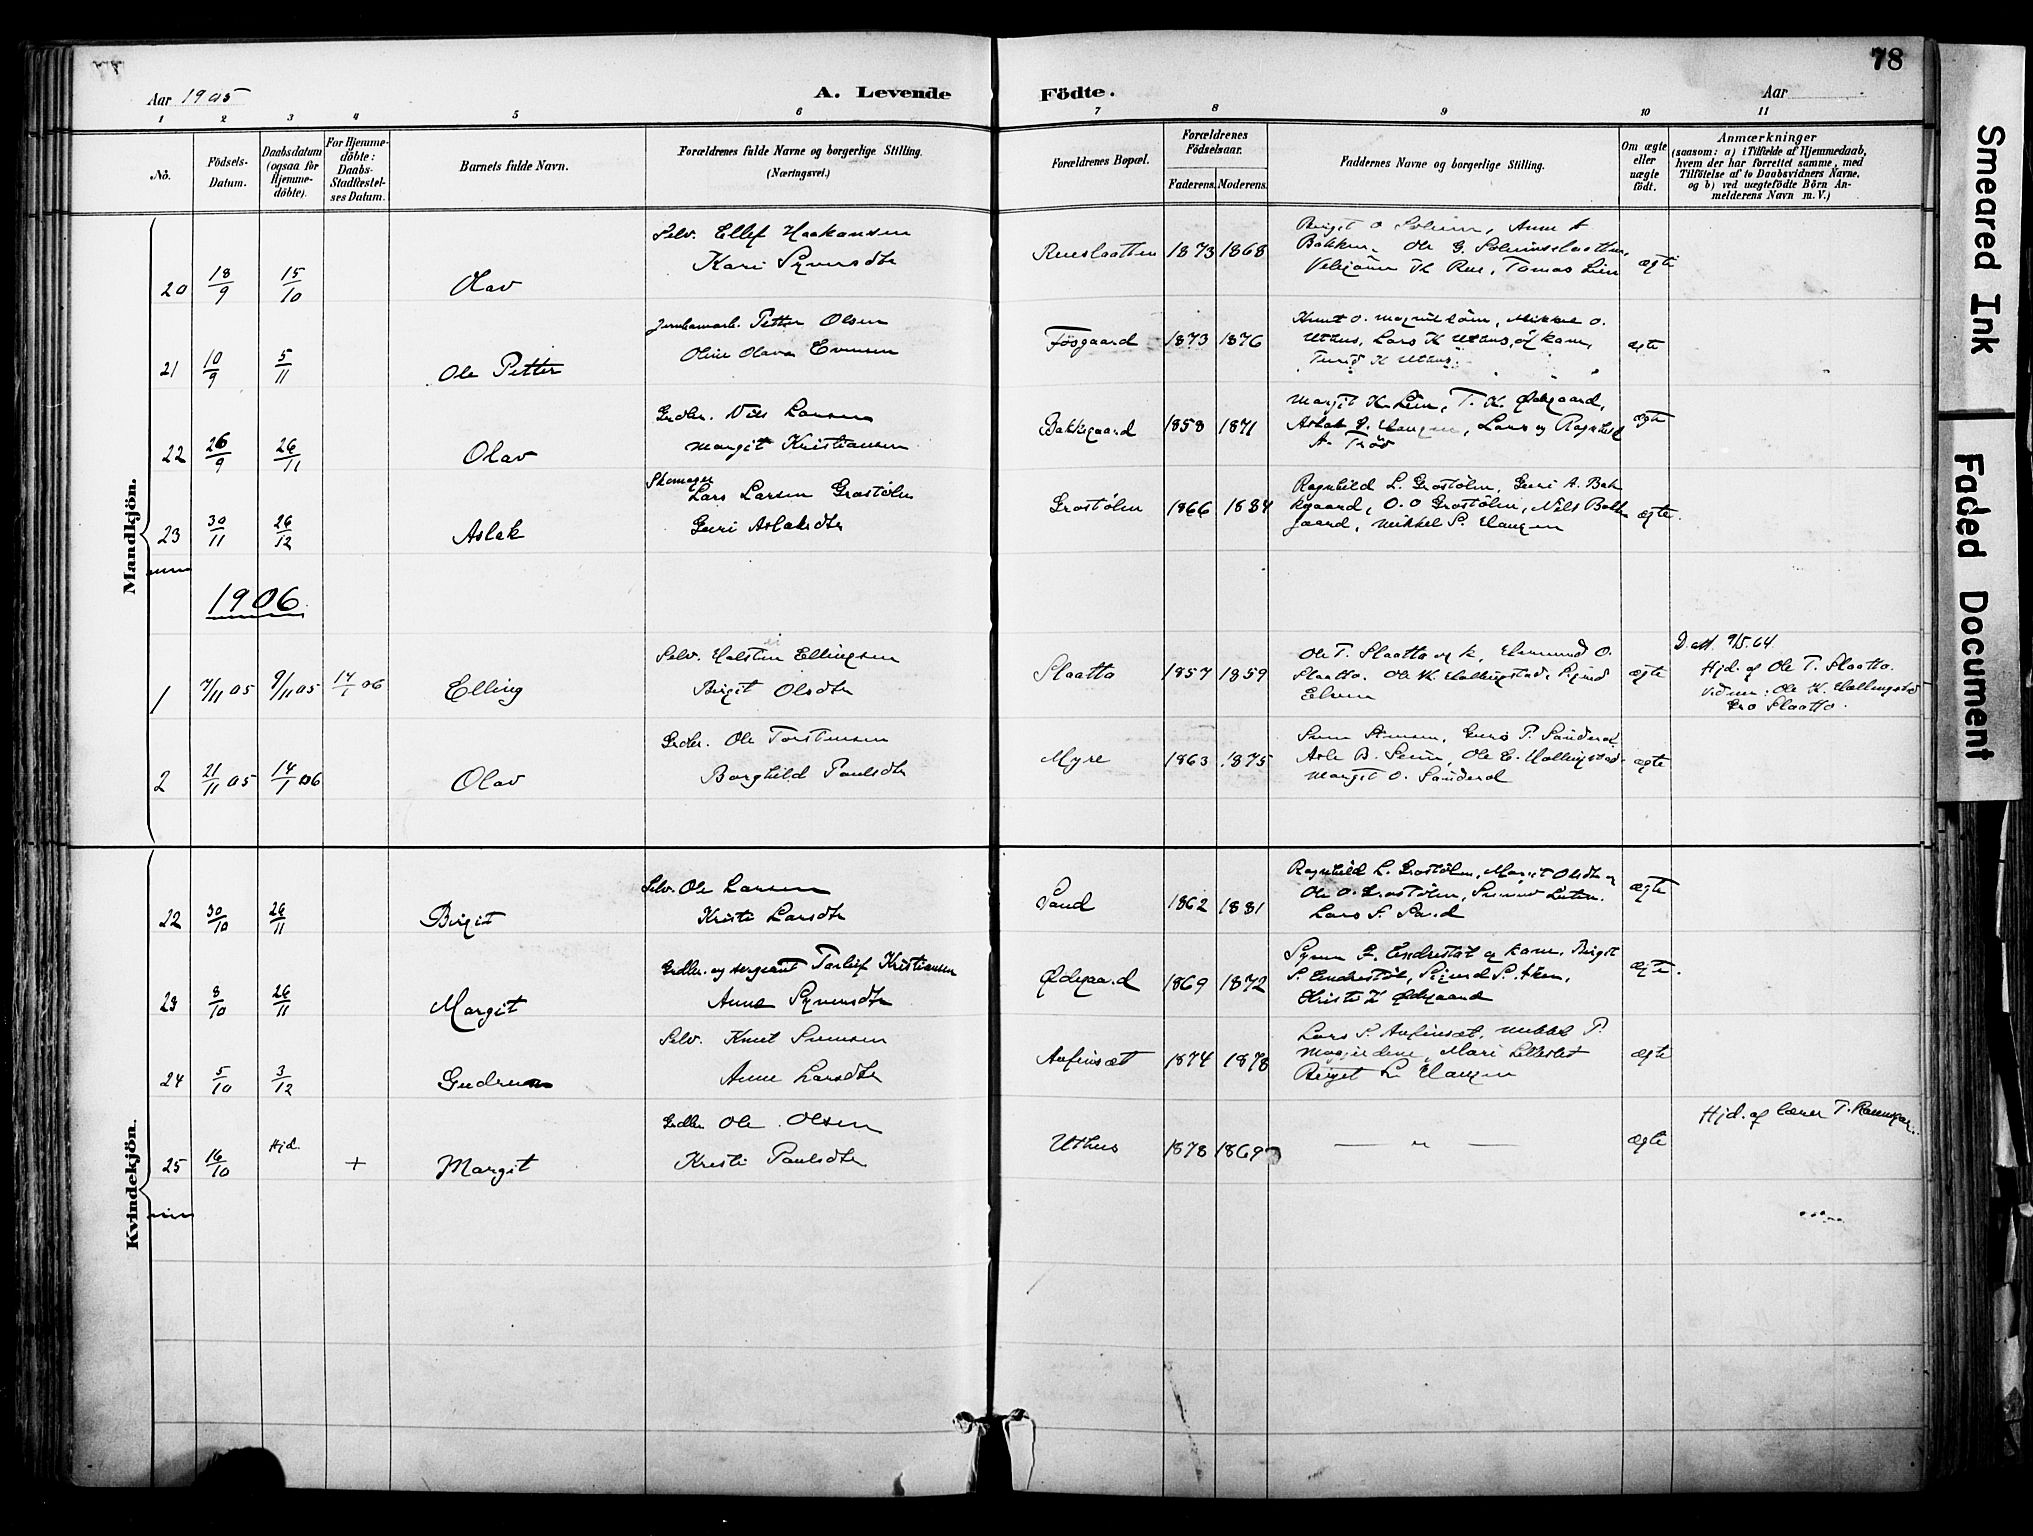 78
Aar 1905
A. Levende Födte.
Aar
1 2 3 4 5 6 7 8 9 10 11
No.
Födsels-Datum.
Daabsdatum (ogsaa for Hjemme-döbte).
For Hjemme-döbte: Daabs-Stadfæstel-ses Datum.
Barnets fulde Navn.
Forældrenes fulde Navne og borgerlige Stilling.
(Næringsvei.)
Forældrenes Bopæl.
Forældrenes Födselsaar.
Faderens. Moderens.
Faddernes Navne og borgerlige Stilling.
Om ægte eller uægte födt.
Anmærkninger
(saasom: a) i Tilfælde af Hjemmedaab,
hvem der har forrettet samme, med
Tilföielse af to Daabsvidners Navne,
og b) ved uægtefödte Börn An-
melderens Navn m.V.)
Mandkjön.
20 18/9 15/10 Olav
Selv. Ellef Haakansen
Kari Syversdtr
1873 1868
Birgit O Solheim, Anne A
Bakken, Ole G.
K Rue, Tomas Lien
ægte
21 10/9 5/11 Ole Petter
Petter Olsen
Oline Olava Evensen
Fösgaard 1873 1876
Knut O. Mikkel O.
Uthus, Lars K Uthus, og kone,
Turid K Uthus.
ægte
22 26/9 26/11 Olav
Grdbr. Nils Larsen
Margit Kristiansen
Bakkegaard 1858 1871
Margit K Lien, T. K. Ødegaard,
Aslak Haugen, Lars og Ragnhild
A. Tröo
ægte
23 30/11 26/12 Aslak
Skomager
Lars Larsen Grostølen
Guri Aslaksdtr
Grostølen 1866 1884
Ragnhild L. Grostølen, Guri A. Bak
kegaard, O. O Grostølen, Nils Bakke
gaard, Mikkel S. Haugen
ægte.
1906
1 7/11 05 9/11 05 14/1 06 Elling
Selv. Halsten Ellingsen
Birgit Olsdtr
Slaatto 1857 1859
Ole T. Slaatto og k, O.
Slaatto. Ole K Hallingstad, Sigrid
ægte
D. 9/5.64
Hjd. af Ole T. Slaatto.
Vidner: Ole K. Hallingstad
Gro Slaatto.
2 21/11 05 14/1 06 Olav
Grdbr. Ole Torstensen
Borghild Paulsdtr
Myre 1863 1875
Guro P. Sanderud
Asle B. Ole E. Hallingstad
Margit O. Sanderud
ægte
Kvindekjön.
22 30/10 26/11 Birgit
Selv. Ole Larsen
Kristi Larsdtr
Sand 1862 1881
Ragnhild L. Grostølen, Margit Olsdtr og
Ole O. Grostølen,
Lars S. Sand
ægte
23 8/10 26/11 Margit
Grdbr. og sergeant Torleif Kristiansen
Anne Syversdtr
Ødegaard 1869 1872
Syver G. Endrestøl og kone, Birgit
S. Endrestøl, Sigurd S.
Kristi K Ødegaard
ægte.
24 5/10 3/12 Gudrun
Selv. Knut Svensen
Anne Larsdtr
Aufinsæt 1874 1878
Lars S. Aufinsæt, Mikkel P.
Mari
Birgit L. Haugen
ægte
25 16/10 Hjd. + Margit
Grdbr Ole Olsen
Kristi Paulsdtr
Uthus 1878 1869
— " —
ægte
Hjd. af lærer T.
Smeared Ink
Faded Document